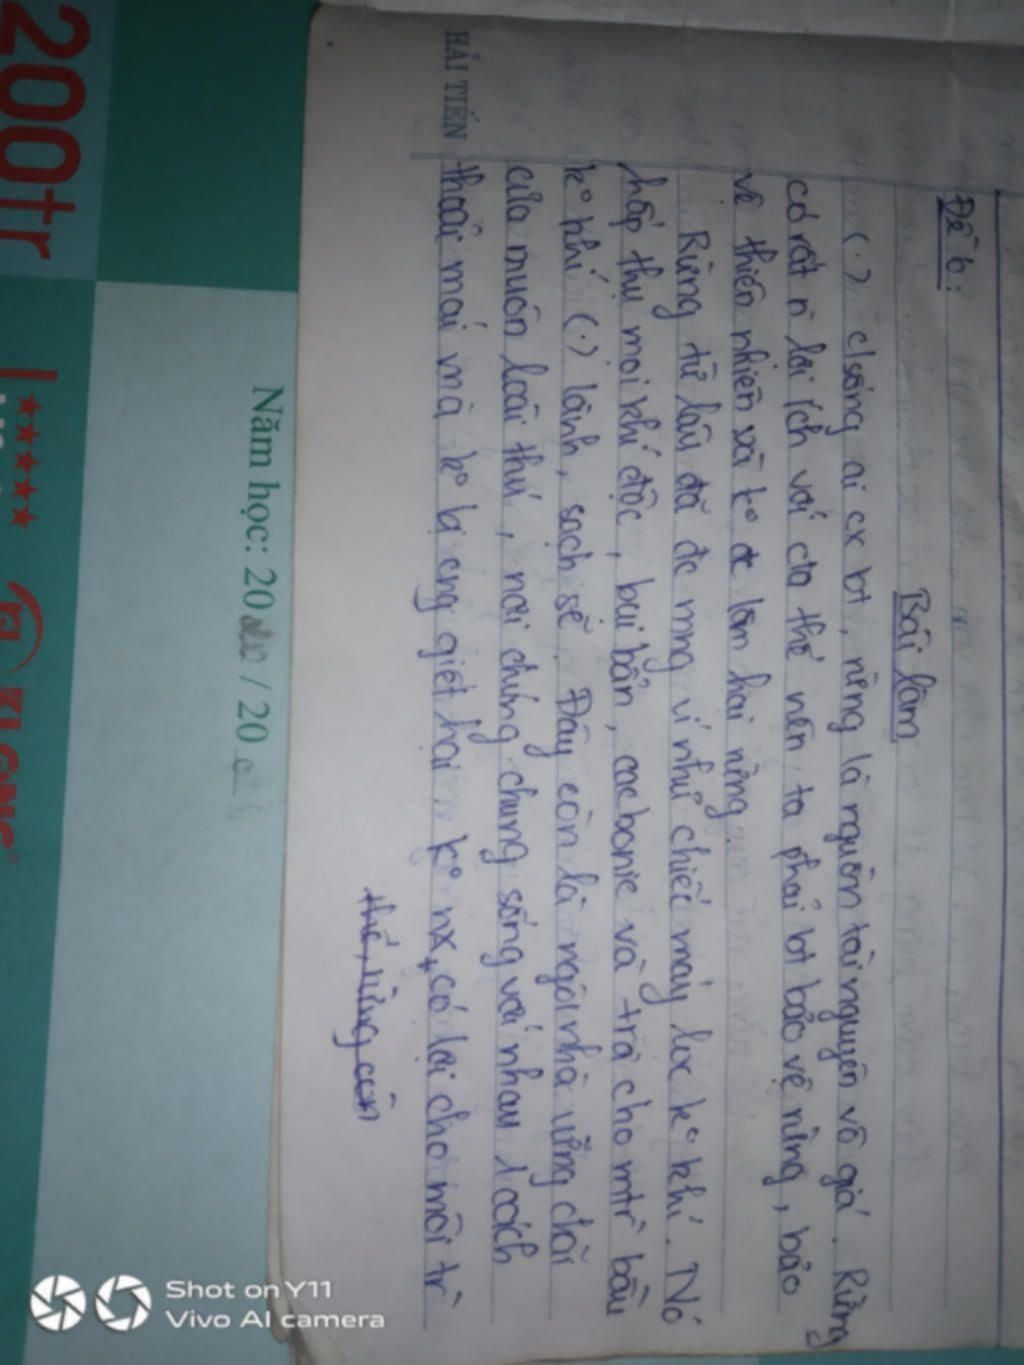 Đề 6:
Bài làm
(.) c/sống ai cx bt, rừng là nguồn tài nguyên vô giá. Rừng
có rất n̄ lợi ích với cta thế nên ta phải bt bảo vệ rừng, bảo
vệ thiên nhiên và k° đc làm hại rừng
Rừng từ lâu đã đc mng ví như chiếc máy lọc k° khí. Nó
hấp thụ mọi khí độc, bụi bẩn, cacbonic và trả cho mtr̀ bầu
k° khí (.) lành, sạch sẽ. Đây còn là ngôi nhà vững chãi
của muôn loài thú, nơi chúng chung sống với nhau 1 cách
thoải mái mà k° bị cng giết hại k° nx, có lợi cho môi tr̀
thế, rừng còn
HẢI TIẾN
Năm học: 20 / 20
200tr
KLONG
Shot on Y11
Vivo AI camera